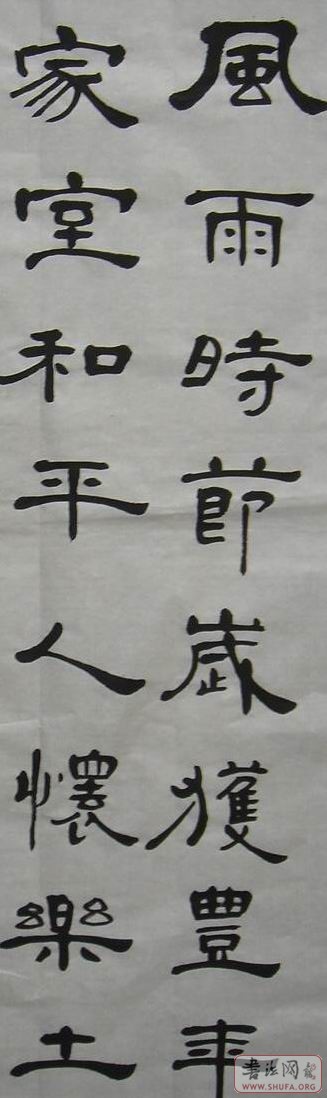 風雨時節歲獲豐年
家室和平人懷樂土
書法网
WWW.SHUFA.ORG